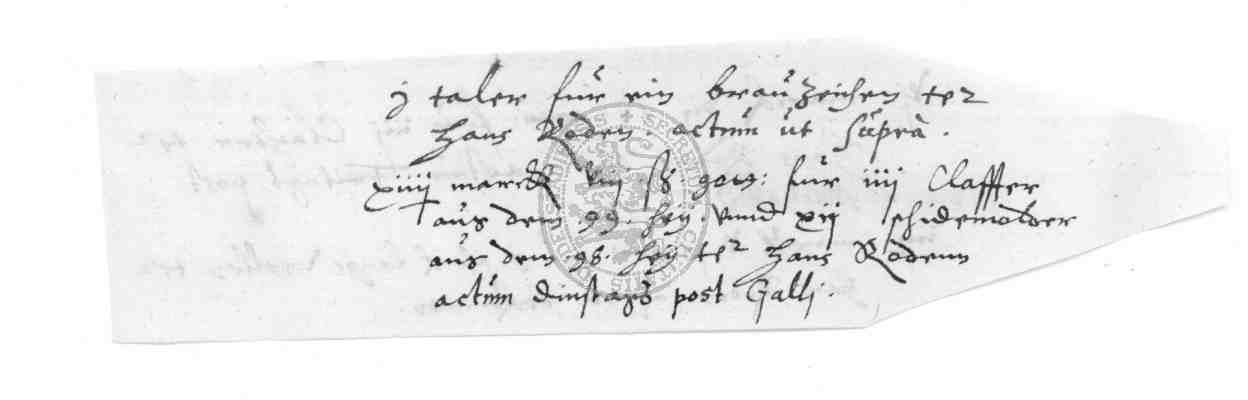 j taler für ein brauzeichen ter
Hans Roden. actum ut supra.
xiiij marck viij ß für iiij Claffter
aus dem 99. heij. vnnd xij schidemolder
aus dem .98. heij ter Hans Rodenn
actum dinstags post Galli.